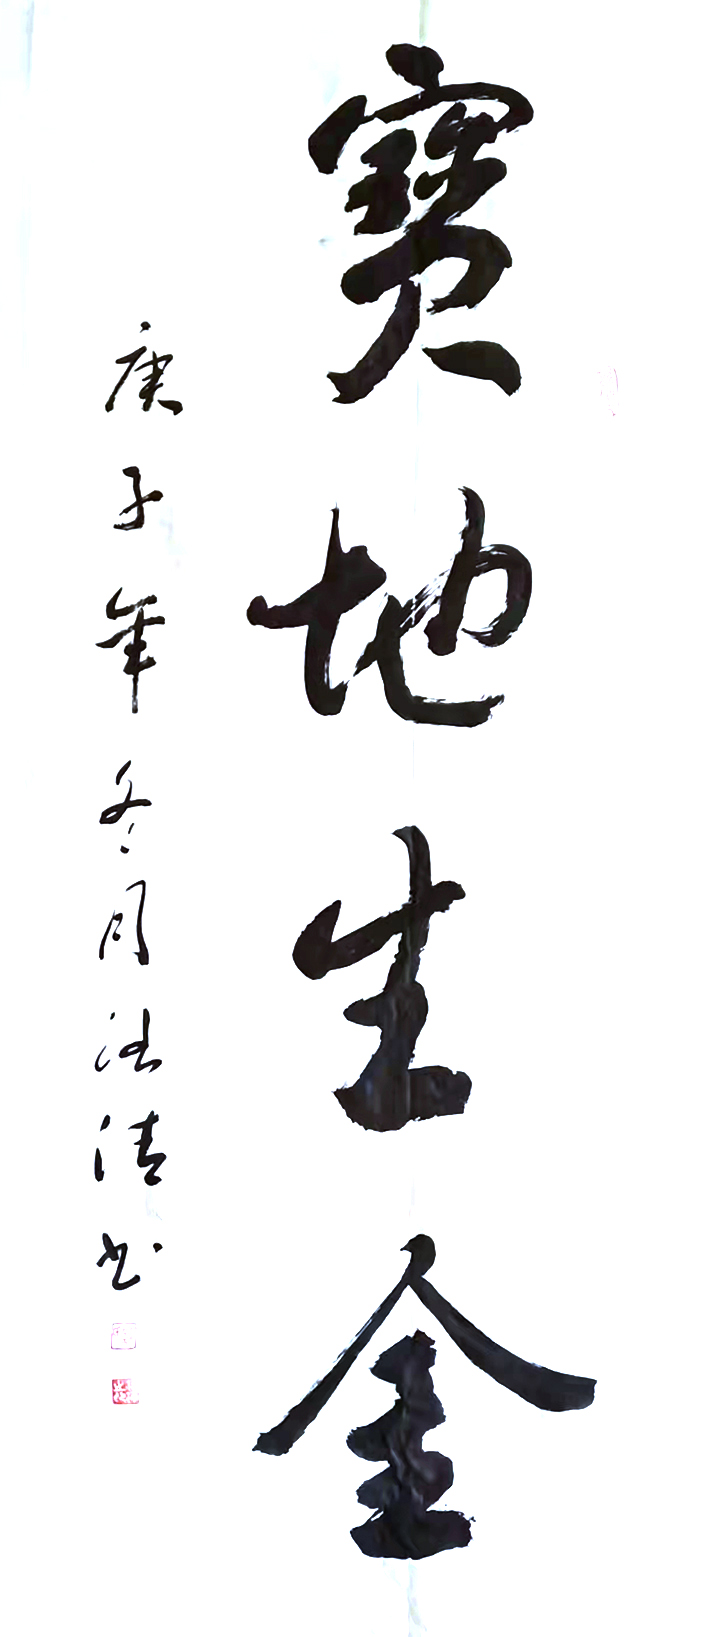 寶地生金
庚子年冬月法清书